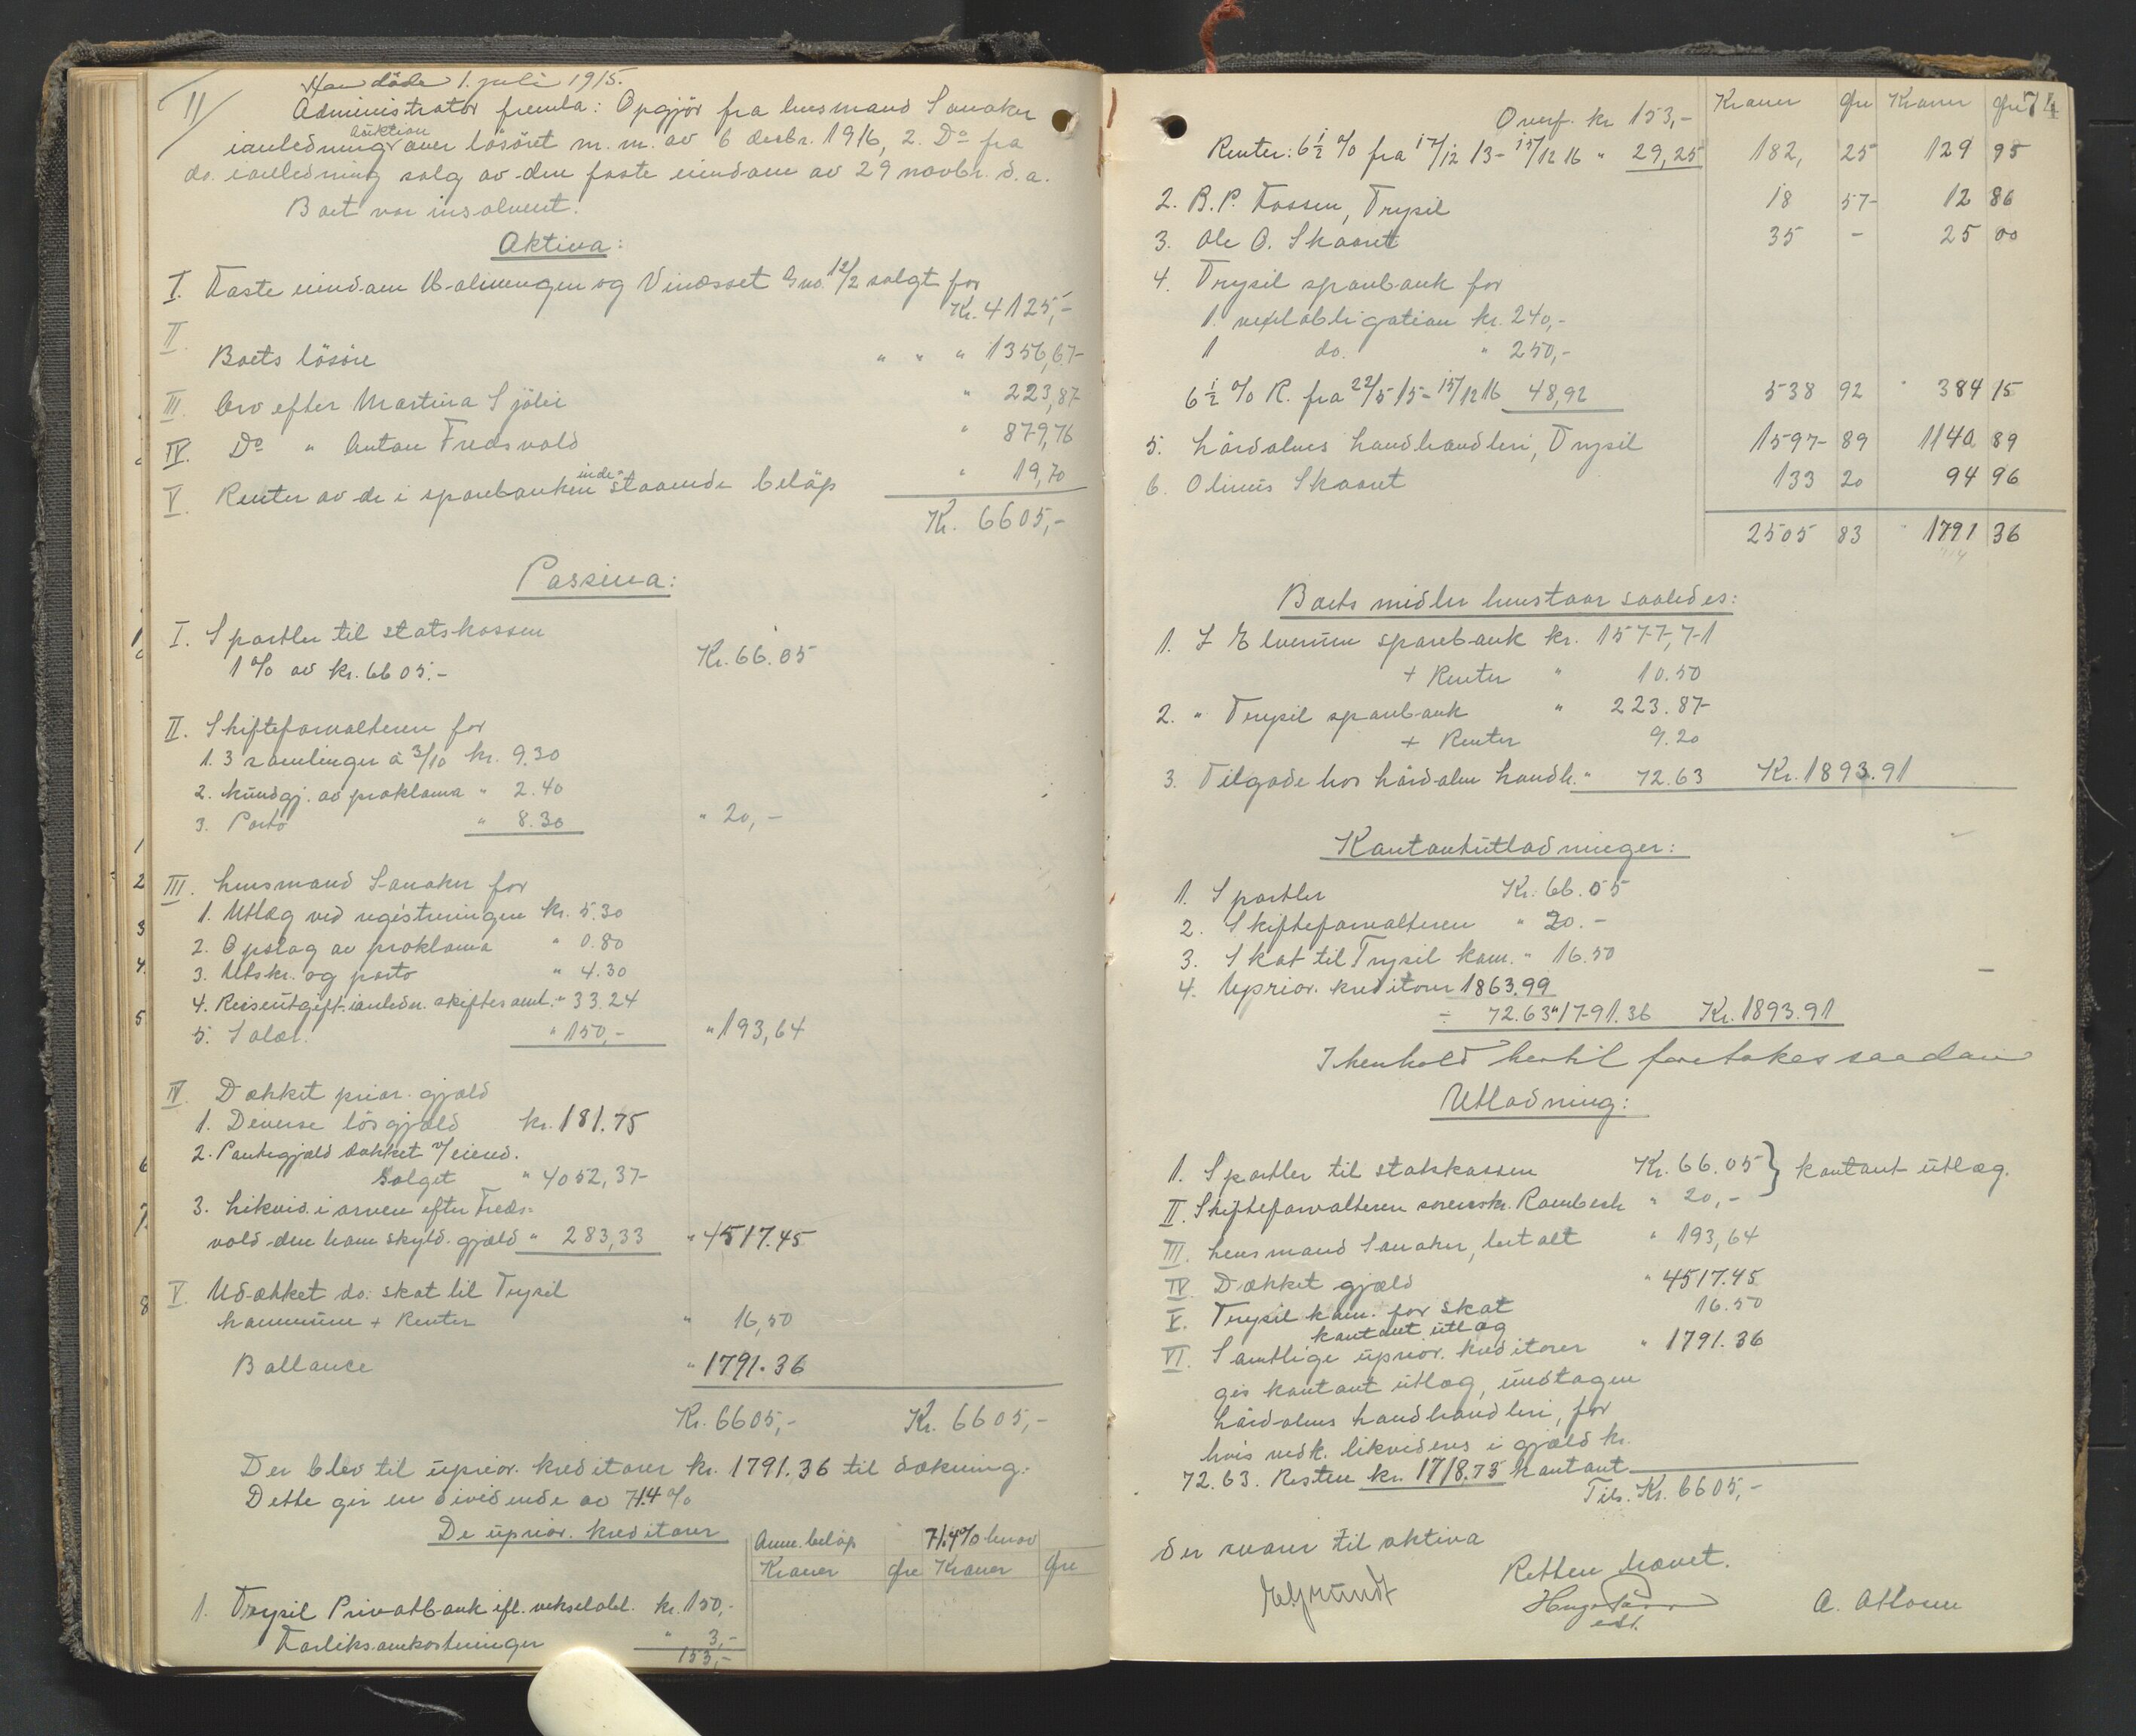 11/
Han döde 1. juli 1915.
Administrator fremla: Opgjör fra lensmand Sanaker
ianledning auktion over lösöret m. m. av 6 decbr. 1916, 2. Do fra
do. ianledning salg av den faste eiendom av 29 novbr. s. a.
Boet var insolvent.
Aktiva:
I. Faste eiendom og Gno. 12/2 solgt for
Kr. 4125,-
II. Boets lösöre " " " 1356,67
III. Arv efter Martina Sjölie " 223,87
IV. Do " Anton Fredsvold " 879,76
V. Renter av de i sparebanken indestaaende belöp " 19,70
Kr. 6605,-
Passiva:
I. Sportler til statskassen
1 % av kr. 6605.- Kr. 66.05
II. Skifteforvalteren for
1. 3 samlinger à 3/10 kr. 9.30
2. Kundgj. av proklama " 2.40
3. Porto " 8.30 " 20,-
III. Lensmand Sanaker for
1. Utlæg ved registreringen kr. 5.30
2. Opslag av proklama " 0.80
3. Utskr. og porto " 4.30
4. Reiseutgift ianledn. skiftesaml. " 33.24
5. Salær. " 150,- " 193,64
IV. Dækket prior. gjæld
1. Diverse lösgjæld kr. 181.75
2. Pantegjæld dækket v/ eiend.
Salget " 4052,37
3. Likvid. i arven efter Freds-
vold den ham skyld. gjæld " 283,33 " 4517.45
V. Udækket do: skat til Trysil
kommune + Renter " 16,50
Ballance " 1791.36
Kr. 6605,- Kr. 6605,-
Der blev til uprior. kreditorer kr. 1791.36 til dækning.
Dette gir en dividende av 71.4 %
De uprior. kreditorer Anm. belöp 71.4% herav
Kroner Øre Kroner Øre
1. Trysil Privatbank ifl. vekselobl. kr. 150,-
Forliksomkostninger " 3,-
153,-
74
Overf. kr 153,- Kroner Øre Kroner Øre
Renter: 6 1/2 % fra 17/12 13 - 15/12 16 " 29,25 182, 25 129 95
2. B. P. Fossen, Trysil 18 57 12 86
3. Ole O. Skaaret 35 - 25 00
4. Trysil sparebank for
1. vexelobligation kr. 240,-
1 do. " 250,-
6 1/2 % R. fra 22/5 15 - 15/12 16 48,92 538 92 384 15
5. Lördalens landhandleri, Trysil 1597 89 1140 89
6. Olinus Skaaret 133 20 94 96
2505 83 1791 36
Boets midler henstaar saaledes:
1. I Elverum sparebank kr. 1577,71
+ Renter " 10.50
2. " Trysil sparebank " 223.87
+ Renter 9.20
3. Tilgode hos Lördalen landh. " 72.63 Kr. 1893.91
Kontantutlodninger:
1. Sportler Kr. 66.05
2. Skifteforvalteren " 20.-
3. Skat til Trysil kom. " 16.50
4. Uprior. kreditorer 1863.99
÷ 72.63 " 1791.36 Kr. 1893.91
I henhold hertil foretokes saadan
Utlodning:
I. Sportler til statskassen Kr. 66.05 } kontant utlæg.
II. Skifteforvalteren sorenskr. Rambech " 20,-
III. Lensmand Sanaker, betalt " 193,64
IV. Dækket gjæld " 4517.45
V. Trysil kom. for skat 16.50
kontant utlæg
VI. Samtlige uprior. kreditorer " 1791.36
gis kontant utlæg, undtagen
Lördalens landhandleri, for
hvis vedk. likvideres i gjæld kr.
72.63. Resten kr. 1718.73 kontant
Tils. Kr. 6605,-
der svarer til aktiva
Retten hævet.